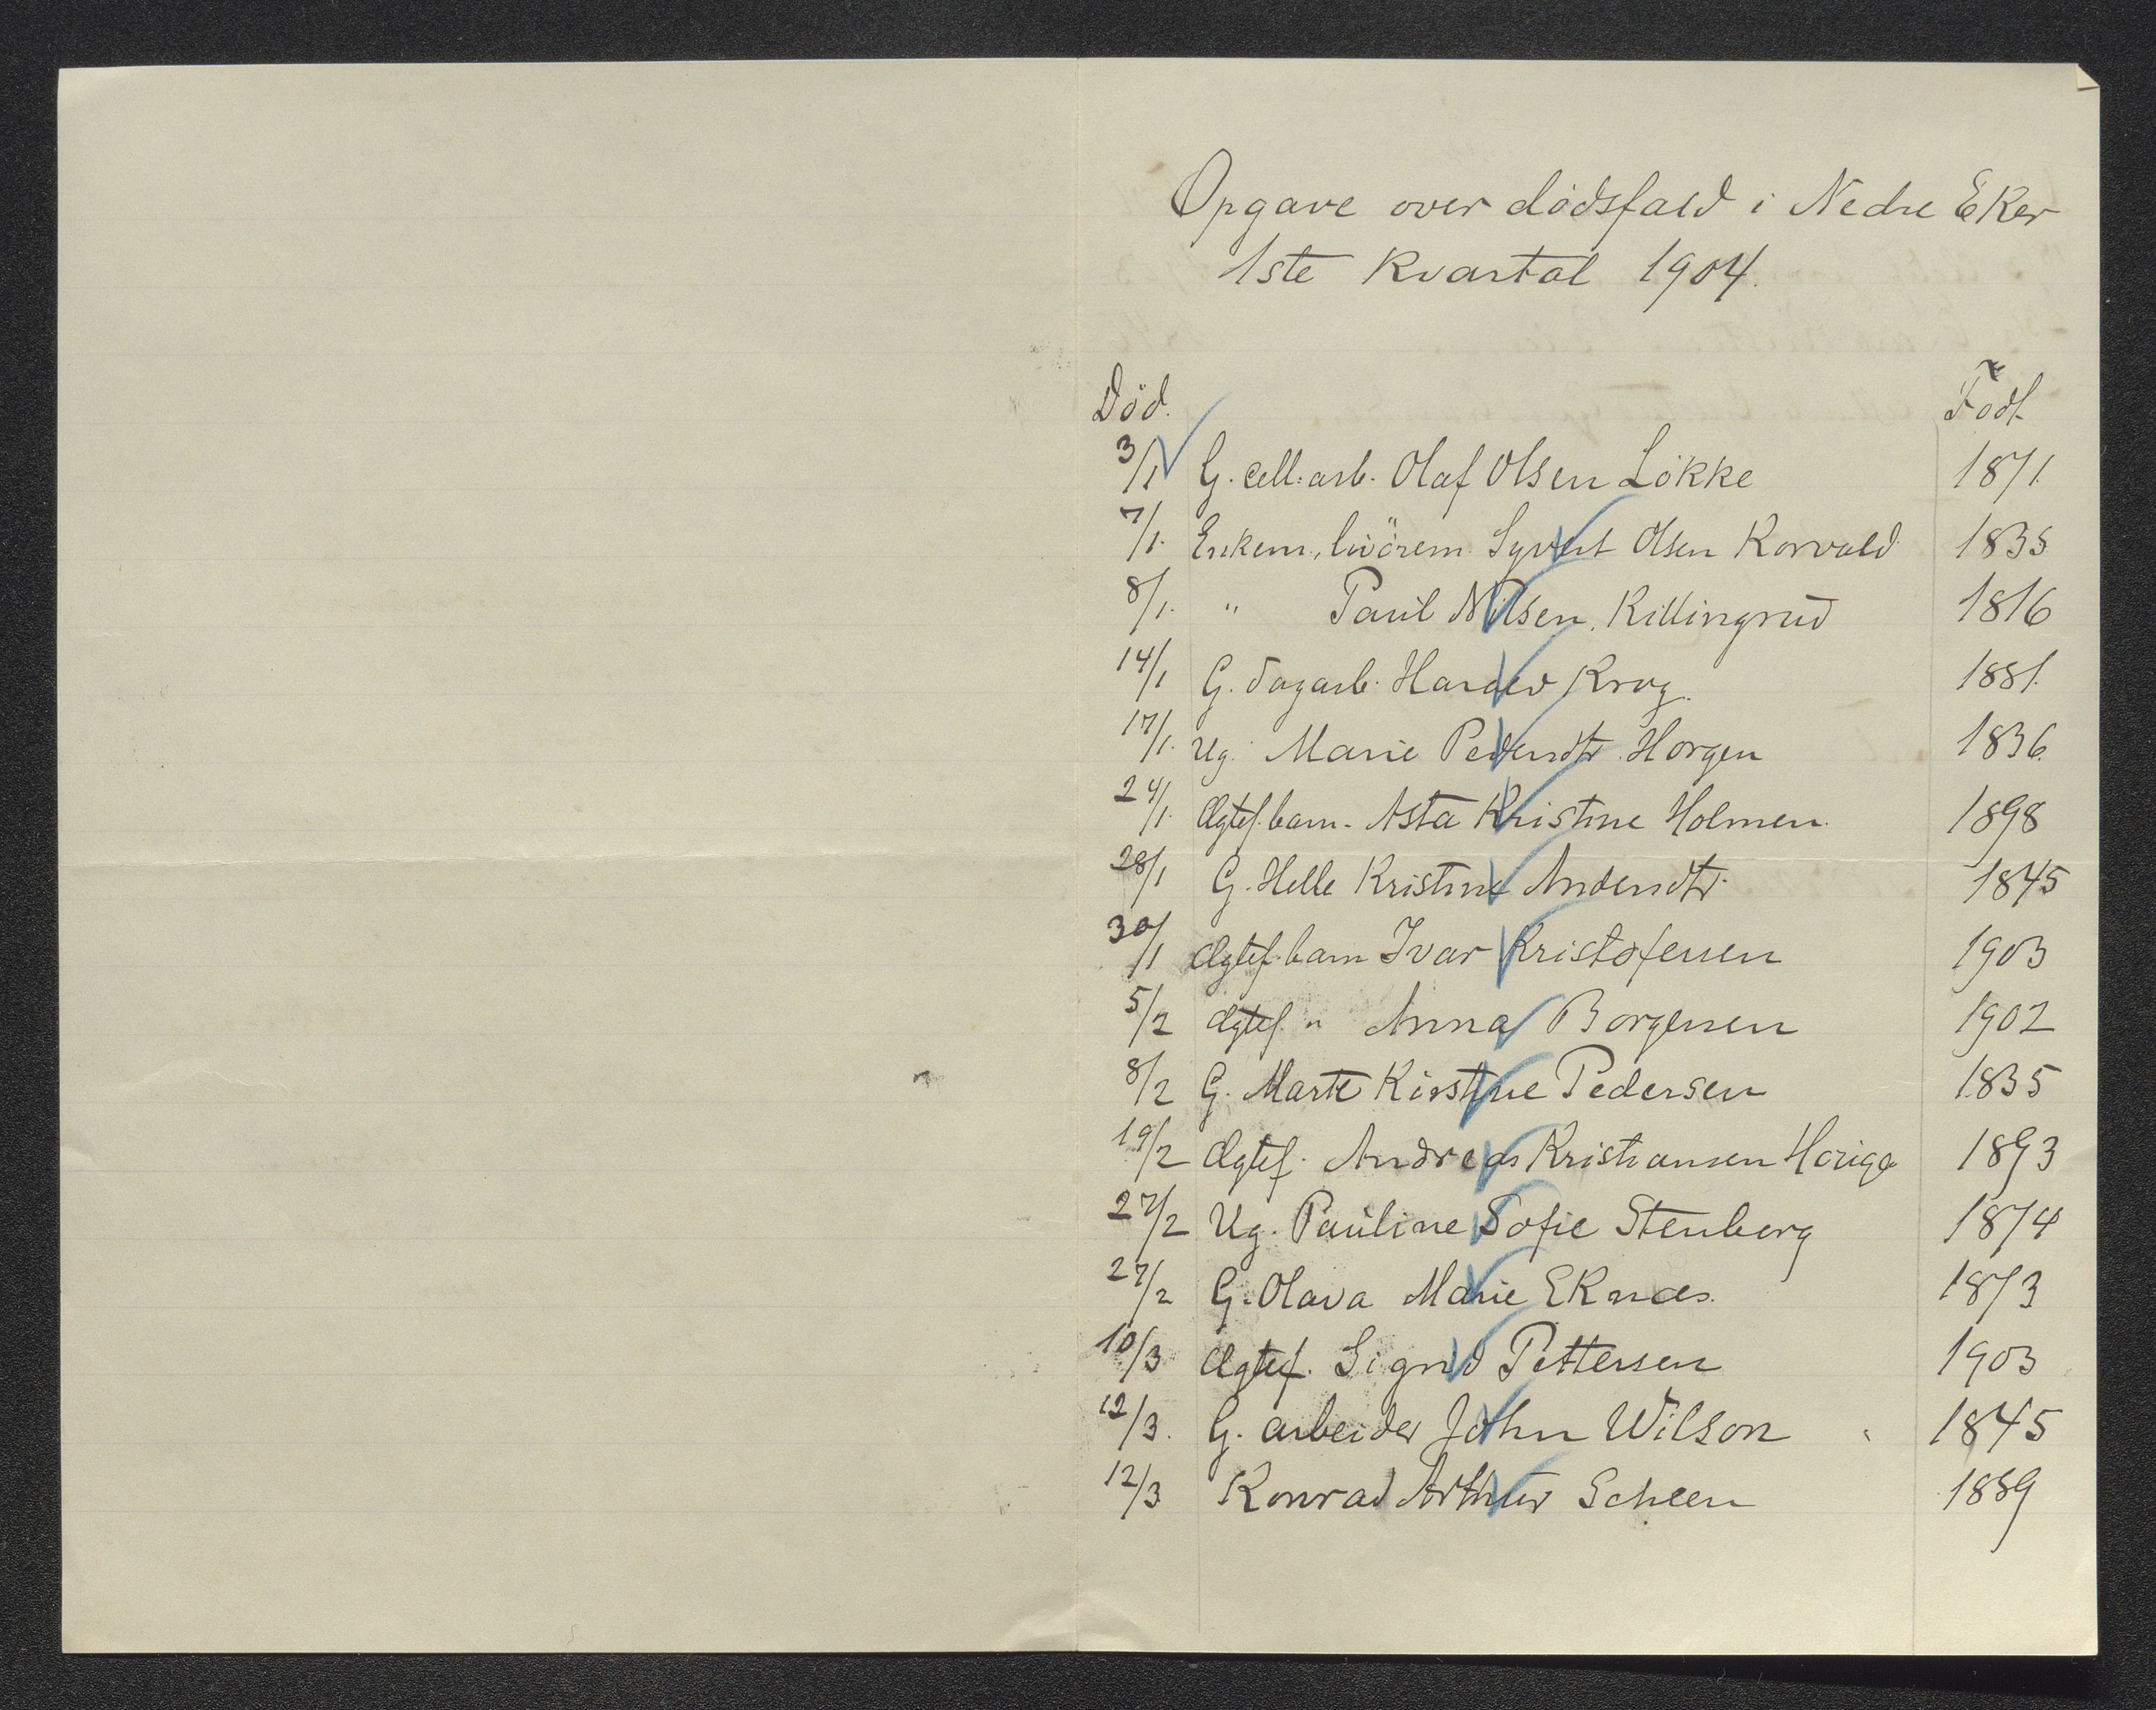 Opgave over dødsfald i Nedre Eker
1ste Kvartal 1904.
Død. Født
3/1 G. cell. arb. Olaf Olsen Løkke 1871.
7/1. Enkem., livørem. Syvert Olsen Korvald 1835
8/1. " Paul Nilsen Killingrud 1816
14/1 G. dagarb. Harald Krog. 1881.
17/1. Ug. Marie Pedersdtr. Horgen 1836.
24/1. Ægtef. barn. Asta Kristine Holmen. 1898
28/1 G. Helle Kristine Andersdtr. 1845
30/1 Ægtef. barn Ivar Kristofersen 1903
5/2 Ægtef. " Anna Borgersen 1902
8/2 G. Marte Kirstine Pedersen 1835
19/2 Ægtef. Andreas Kristiansen 1893
27/2 Ug. Pauline Sofie Stenberg 1874
27/2 G. Olava Marie Eknæs. 1873
10/3 Ægtef. Sigrid Pettersen 1903
12/3. G. arbeider John Wilson 1845
12/3 Konrad Arthur Scheen 1889